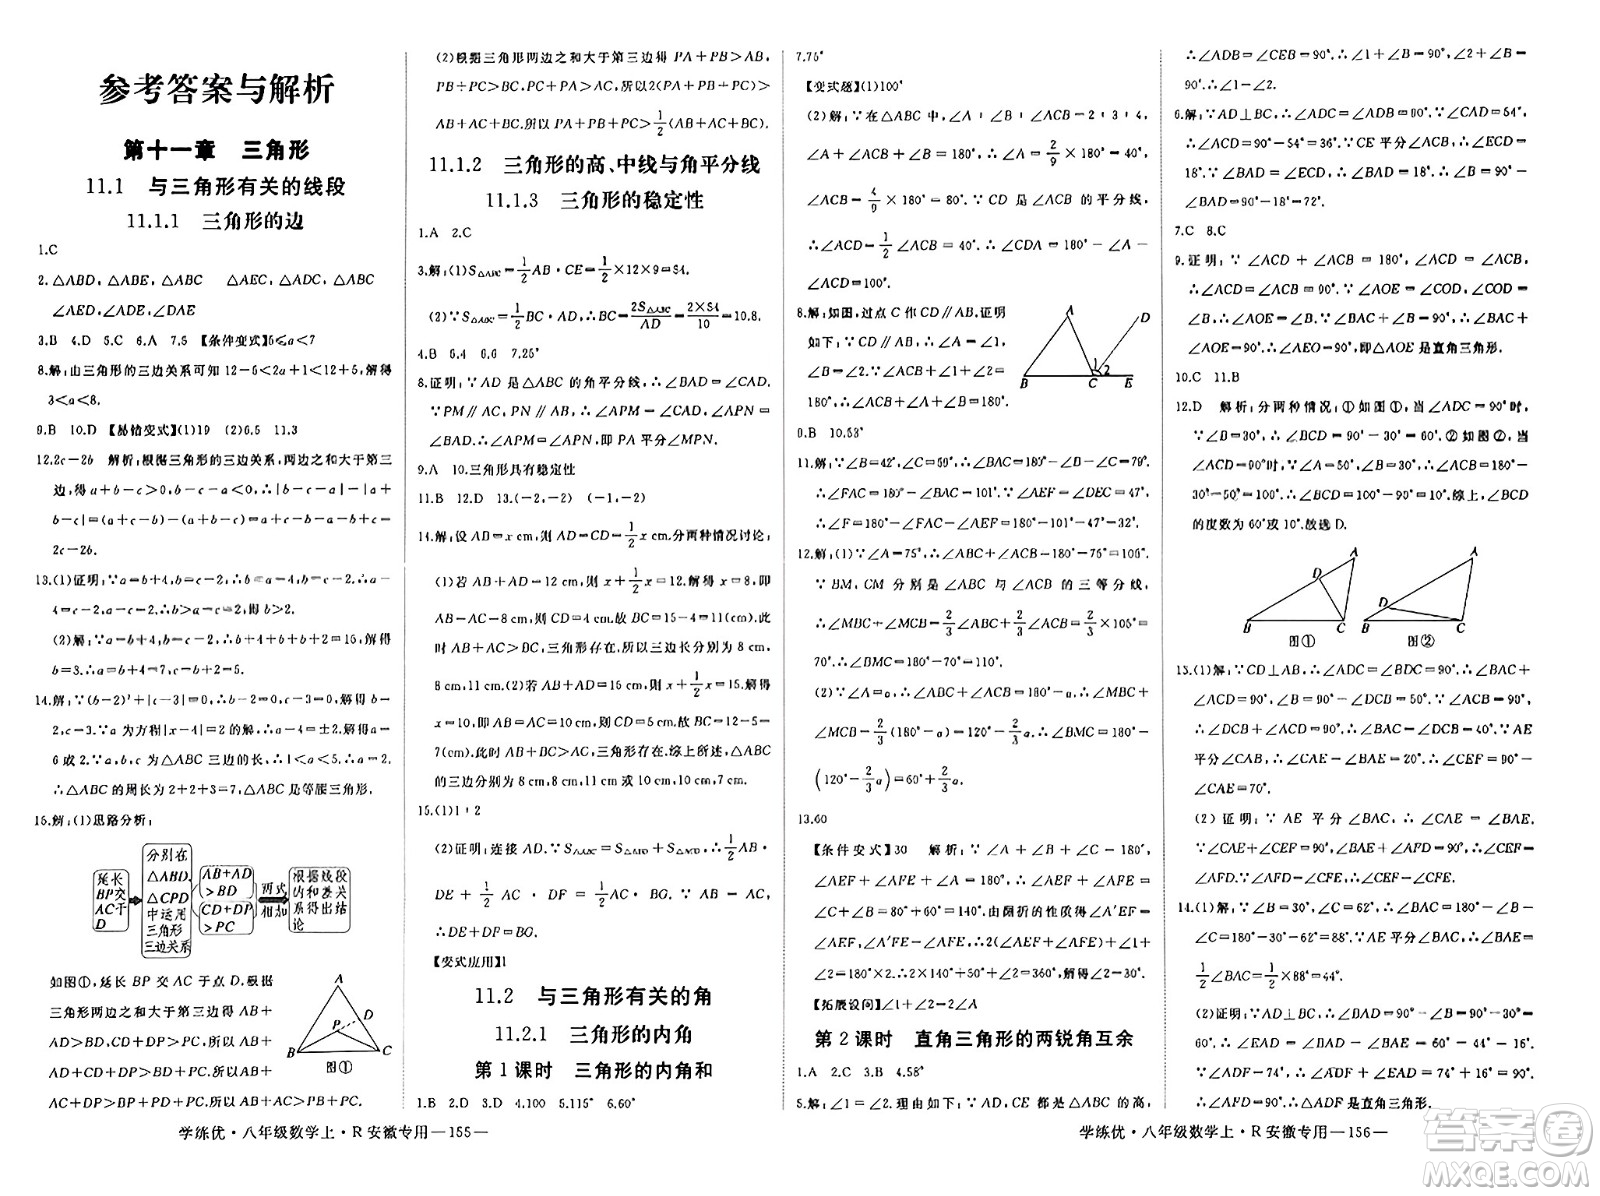 参考答案与解析
第十一章 三角形
11.1 与三角形有关的线段
11.1.1 三角形的边
1.C
2.△ABD,△ABE,△ABC △AEC,△ADC,△ABC
∠AED,∠ADE,∠DAE
3.B 4.D 5.C 6.A 7.5 【条件变式】5≤a<7
8.解:由三角形的三边关系可知 12-5<2a+1<12+5,解得
3<a<8.
9.B 10.D 【易错变式】(1)19 (2)6.5 11.3
12.2c-2b 解析:根据三角形的三边关系,两边之和大于第三
边,得 a+b-c>0,b-c-a<0,∴|b-c-a|-|a+
b-c|=(a+c-b)-(a+b-c)=a+c-b-a-b+c=
2c-2b.
13.(1)证明:∵a=b+4,b=c-2,∴a=b+4=c-2+
4=c+2,a+b>c.
(2)解:∵a=b+4,b=c-2,∴b+4+b+b+2=15,解得
b=3.∴a=b+4=7,c=b+2=5.
14.解:∵(b-2)²+|c-3|=0,∴b-2=0,c-3=0,解得 b=2,
c=3.∵a 为方程|x-4|=2 的解,∴a-4=±2,解得 a=
6 或 2.∵a,b,c 为△ABC 三边的长,∴1<a<5.∴a=2.
∴△ABC 的周长为 2+2+3=7,△ABC 是等腰三角形.
15.解:(1)思路分析:
延长
BP交
AC于
D
分别在
△ABD,
△CPD
中运用
三角形
三边关系
AB+AD
>BD
CD+DP
>PC
两式
相加
根据线段
内和差关
系得出结
论
如图①,延长 BP 交 AC 于点 D.根据
三角形两边之和大于第三边得 AB+
AD>BD,CD+DP>PC,所以 AB+
AD+CD+DP>BD+PC,即 AB+
AC+DP>BP+DP+PC,所以 AB+AC>BP+PC.
A
D
P
B
C
图①
学练优·八年级数学上·R 安徽专用—155—
(2)根据三角形两边之和大于第三边得 PA+PB>AB,
PB+PC>BC,PA+PC>AC,所以2(PA+PB+PC)>
AB+AC+BC.所以 PA+PB+PC>1/2(AB+AC+BC).
11.1.2 三角形的高、中线与角平分线
11.1.3 三角形的稳定性
1.A 2.C
3.解:(1)S△ABC=1/2AB·CE=1/2×12×9=54.
(2)∵S△ABC=1/2BC·AD,∴BC=2S△ABC/AD=2×54/10=10.8.
4.B 5.4 6.6 7.25°
8.证明:∵AD 是△ABC 的角平分线,∴∠BAD=∠CAD.
∵PM∥AC,PN∥AB,∴∠APM=∠CAD,∠APN=
∠BAD.∴∠APM=∠APN,即 PA 平分∠MPN.
9.A 10.三角形具有稳定性
11.B 12.D 13.(-2,-2) (-1,-2)
14.解:设 AB=x cm,则 AD=CD=1/2 x cm.分两种情况讨论:
(1)若 AB+AD=12 cm,则 x+1/2x=12.解得 x=8,即
AB=AC=8 cm,则 CD=4 cm.故 BC=15-4=11(cm).此
时 AB+AC>BC,三角形存在,所以三边长分别为 8 cm,
8 cm,11 cm.(2)若 AB+AD=15 cm,则 x+1/2x=15.解得
x=10,即 AB=AC=10 cm,则 CD=5 cm.故 BC=12-5=
7(cm).此时 AB+BC>AC,三角形存在.综上所述,△ABC
的三边分别为 8 cm,8 cm,11 cm 或 10 cm,10 cm,7 cm.
15.(1)1:2
(2)证明:连接 AD.∵S△ABC=S△ABD+S△ADC=1/2AB·
DE+1/2AC·DF=1/2AC·BG.∵AB=AC,
∴DE+DF=BG.
【变式应用】1
11.2 与三角形有关的角
11.2.1 三角形的内角
第 1 课时 三角形的内角和
1.B 2.D 3.D 4.100 5.115° 6.60°
7.75°
【变式题】(1)100°
(2)解:∵在△ABC 中,∠A:∠B:∠ACB=2:3:4,
∠A+∠ACB+∠B=180°,∴∠A=2/9×180°=40°,
∠ACB=4/9×180°=80°.∵CD 是∠ACB 的平分线,
∴∠ACD=1/2∠ACB=40°.∴∠CDA=180°-∠A-
∠ACD=100°.
8.解:如图,过点 C 作 CD∥AB.证明
如下:∵CD∥AB,∴∠A=∠1,
∠B=∠2.∵∠ACB+∠1+∠2=
180°,∴∠A+∠B+∠ACB=180°.
A
D
1
2
B
C
E
9.B 10.53°
11.解:∵∠B=42°,∠C=59°,∴∠BAC=180°-∠B-∠C=79°.
∴∠FAC=180°-∠BAC=101°.∵∠AEF=∠DEC=47°,
∴∠F=180°-∠FAC-∠AEF=180°-101°-47°=32°.
12.解:(1)∵∠A=75°,∴∠ABC+∠ACB=180°-∠A=105°.
∵BM,CM 分别是∠ABC 与∠ACB 的三等分线,
∴∠MBC+∠MCB=2/3(∠ABC+∠ACB)=2/3×105°=
70°.∴∠BMC=180°-70°=110°.
(2)∵∠A=a,∴∠ABC+∠ACB=180°-a.∴∠MBC+
∠MCB=2/3(180°-a)=120°-2/3a.∴∠BMC=180°-
(120°-2/3a)=60°+2/3a.
13.60
【条件变式】30 解析:∵∠A+∠B+∠C=180°,
∠AEF+∠AFE+∠A=180°,∴∠AEF+∠AFE=
∠C+∠B=80°+70°=150°.由翻折的性质得∠A'EF=
∠AEF,∠A'FE=∠AFE,∴2(∠AEF+∠AFE)+∠1+
∠2=180°×2.∴∠1+∠2=360°-2×150°=60°.
【拓展设问】∠1+∠2=2∠A
第 2 课时 直角三角形的两锐角互余
1.A 2.C 3.B 4.58°
5.解:∠1=∠2.理由如下:∵AD,CE 都是△ABC 的高,
∴∠ADB=∠CEB=90°.∴∠1+∠B=90°,∠2+∠B=
90°.∴∠1=∠2.
6.解:∵AD⊥BC,∴∠ADC=∠ADB=90°.∵∠ACD=54°,
∴∠CAD=90°-54°=36°.∵CE 平分∠CAD,∴∠CAE=
18°.∵AD⊥BC,∠ECD=∠B,∴∠BAD=90°-∠B.
∠BAD=90°-18°=72°.
7.C 8.C
9.证明:∵∠ACD+∠ACB=90°,∠ACD=∠B,
∴∠ACD+∠ACB=90°.∵∠AOE=∠COD,∠COD=
∠B,∴∠AOE=∠B.∵∠A+∠B=90°,∴∠A+
∠AOE=90°.∴∠AEO=90°,即△AOE 是直角三角形.
10.C 11.B
12.D 解析:分两种情况:①如图①,当∠ADC=90°时,
∵∠B=30°,∴∠BCD=90°-30°=60°.②如图②,当
∠ACD=90°时,∵∠A=50°,∠B=30°,∴∠ACB=180°-
30°-50°=100°.∴∠BCD=100°-90°=10°.综上,∠BCD
的度数为60°或10°.故选D.
A
D
B
C
图①
A
D
B
C
图②
13.(1)解:∵CD⊥AB,∴∠ADC=∠BDC=90°.∵∠BAC+
∠ACD=90°,∠B=90°-∠BAC=50°,∴∠ACD=∠B=
∠DCB=∠ACB-∠ACD=90°-∠DCB=40°.∵AE
平分∠CAB,∴∠CAE=∠BAE=20°.∴∠CEF=90°-
∠CAE=70°.
(2)证明:∵AE 平分∠BAC,∴∠CAE=∠BAE.
∵∠CAE+∠CEF=90°,∠BAE+∠AFD=90°,
∴∠AFD=∠CEF.∵∠AFD=∠CFE,∴∠CEF=∠CFE.
14.(1)解:∵∠B=30°,∠C=62°,∴∠BAC=180°-∠B-
∠C=180°-30°-62°=88°.∵AE 平分∠BAC,∴∠CAE=
1/2∠BAC=1/2×88°=44°.
(2)证明:∵AD⊥BC,∴∠CAD=90°-∠C=90°-62°=
28°.∴∠EAD=∠CAE-∠CAD=16°.∵∠ADF=74°,
∴∠EAD+∠ADF=90°.∴△ADF是直角三角形.
学练优·八年级数学上·R 安徽专用—156—
答案圈
MXQE.COM